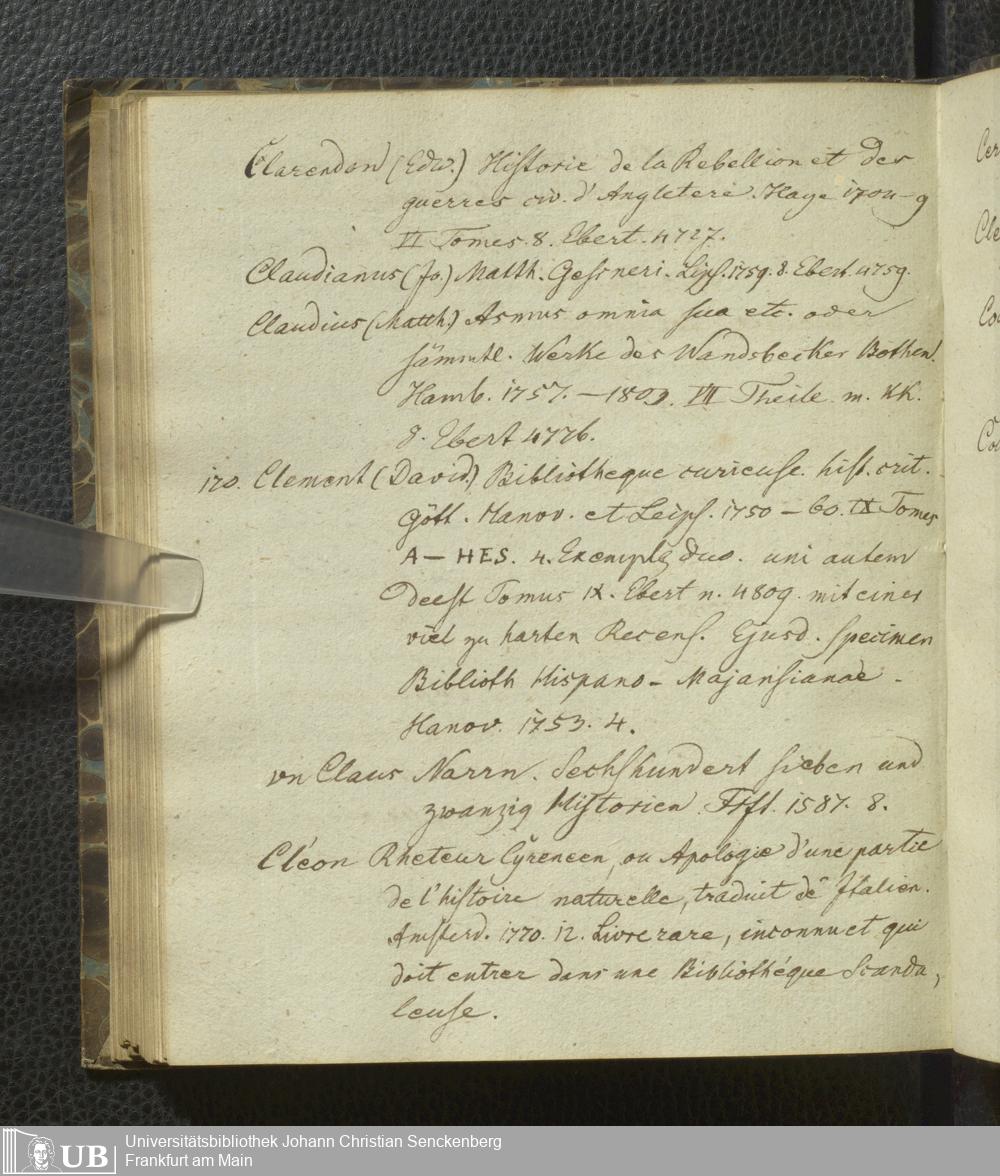 Clarendon (Edw.) Historie de la Rebellion et des
guerres civ. d'Angletere. Haye 1704-9
VI Tomes. 8. Ebert. 4727.
Claudianus (Jo.) Matth. Gesneri. Lips. 1759. 8. Ebert. 4759.
Claudius (Matth.) Asmus omnia sua etc. oder
sämmtl. Werke des Wandsbecker Bothen.
Hamb. 1757. — 1803. VII Theile m. KK.
8. Ebert 4776.
170. Clement (David.) Bibliotheque curieuse. hist. crit.
Gött. Hanov. et Leips. 1750 — 60. IX Tomes
A — HES. 4. Exempla duo. uni autem
deest Tomus IX. Ebert n. 4809. mit einer
viel zu harten Recens. Ejusd. specimen
Biblioth Hispano - Majansianae -
Hanov. 1753. 4.
vn Claus Narrn. Sechshundert sieben und
zwanzig Historien Frft. 1587. 8.
Cléon Rheteur Cyreneen, ou Apologie d'une partie
de l'histoire naturelle, traduit de Italien.
Amsterd. 1770. 12. Livre rare, inconnu et qui
doit entrer dans une Bibliothéque Scanda,
leuse.
Cer
Cle
Co
Co
UB
Universitätsbibliothek Johann Christian Senckenberg
Frankfurt am Main